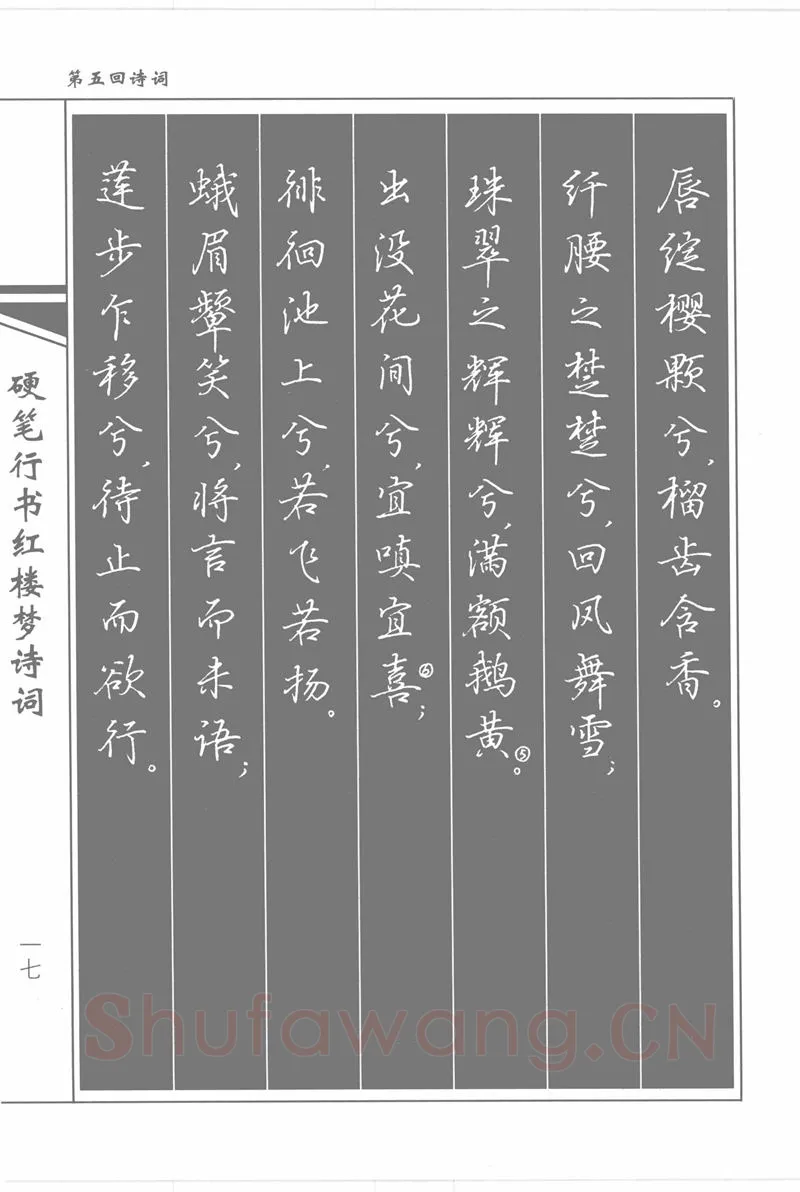 第五回诗词
唇绽樱颗兮，榴齿含香。
纤腰之楚楚兮，回风舞雪；
珠翠之辉辉兮，满额鹅黄⑤。
出没花间兮，宜嗔宜喜⑥；
徘徊池上兮，若飞若扬。
蛾眉颦笑兮，将言而未语；
莲步乍移兮，待止而欲行。
硬笔行书红楼梦诗词
一七
Shufawang.CN